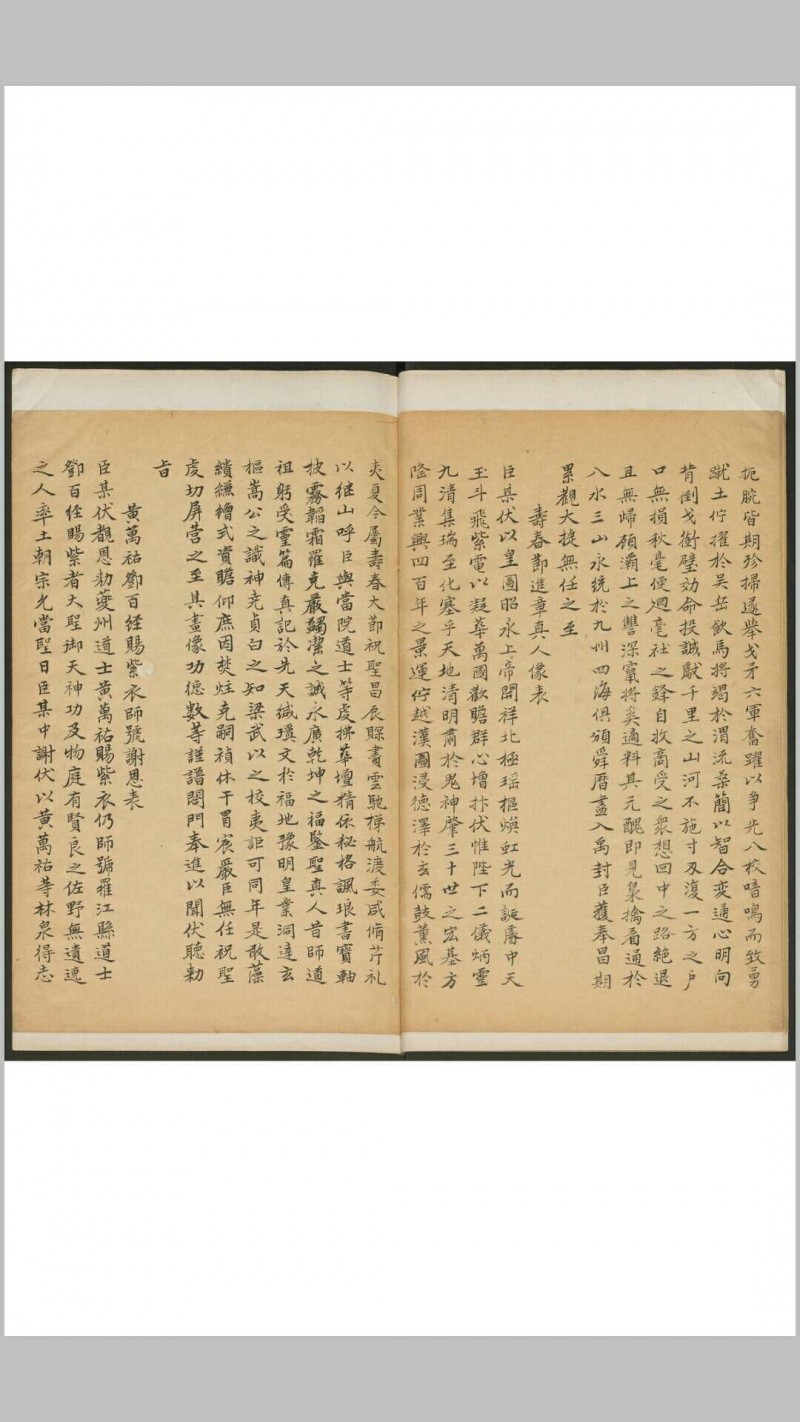 扼腕皆期殄掃遂舉戈矛六軍奮躍以爭先八校喑鳴而致勇
蹴土佇擢於吴岳飲馬將竭於渭流桑簡以智合變通心明向
背倒戈銜璧効命投誠獻千里之山河不施寸刃復一方之户
口無損秋毫便迴亳社之鋒自牧商受之衆想回中之路絶退
且無歸領灞上之讐深竄將奚適料其元醜即見梟擒看通於
八水三山永統於九州四海俱頒舜曆盡入禹封臣獲奉昌期
累觀大捷無任之至
壽春節進章真人像表
臣某伏以皇圖昭永上帝開祥北極瑶樞煥虹光而誕廥中天
玉斗飛紫電以凝華萬國歡瞻群心增抃伏惟陛下二儀炳靈
九清集瑞至化塞乎天地清明肅於鬼神肇三十世之宏基方
隆周業興四百年之景運佇越漢圖浸德澤於玄儒鼓薰風於
夷夏今屬壽春大節祝聖昌辰賝賮雲馳梯航渡委咸脩芹礼
以继山呼臣與當院道士等虔拂華壇精依秘格諷琅書寶軸
披霧韜霜羅克嚴蠲潔之誠永廣乾坤之福鑒聖真人昔師道
祖躬受靈篇傳真記於先天緘璞文於福地豫明皇業洞達玄
樞嵩公之識神堯貞白之知梁武以之校夷詎可同年是敢藻
繢縑繒式資瞻仰庶因焚炷克嗣禎休干冒宸嚴臣無任祝聖
虔切屏营之至其畫像功德数等謹詣閤門奉進以聞伏聽勅
旨
黄萬祐鄧百经賜紫衣師號謝恩表
臣某伏覩恩勅夔州道士黄萬祐賜紫衣仍師號羅江縣道士
鄧百经賜紫者大聖御天神功及物庭有賢良之佐野無遺逸
之人率土朝宗允當聖日臣某中謝伏以黄萬祐等林泉得志